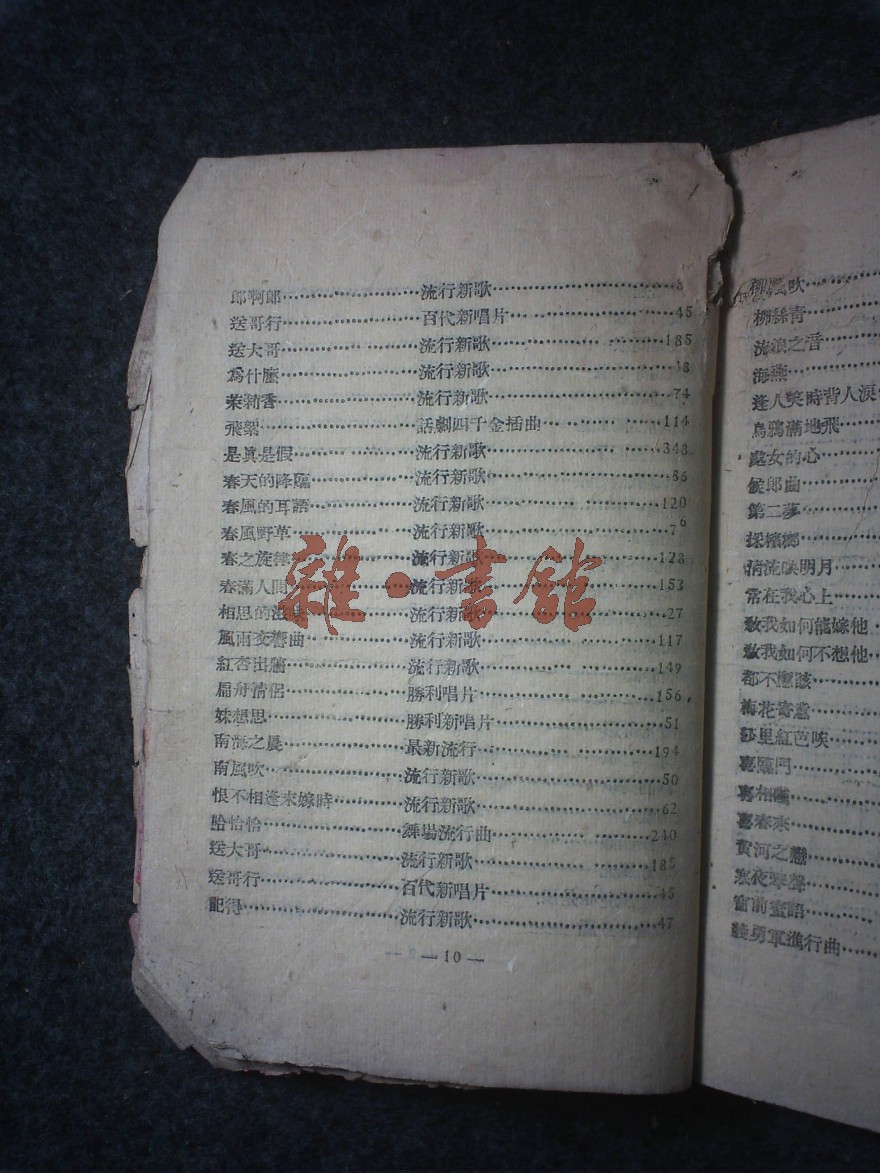 郎啊郎 流行新歌
送哥行 百代新唱片 45
送大哥 流行新歌 185
為什麼 流行新歌
茉莉香 流行新歌 74
飛絮 話劇四千金插曲 114
是眞是假 流行新歌 343
春天的降臨 流行新歌 86
春風的耳語 流行新歌 120
春風野草 流行新歌 76
春之旋律 流行新歌 128
春滿人間 流行新歌 153
相思的滋味 流行新歌 27
風雨交響曲 流行新歌 117
紅杏出牆 流行新歌 149
扁舟情侶 勝利唱片 156
妹想思 勝利新唱片 51
南海之晨 最新流行 194
南風吹 流行新歌 50
恨不相逢未嫁時 流行新歌 62
哈恰恰 舞場流行曲 240
送大哥 流行新歌 185
送哥行 百代新唱片 45
記得 流行新歌 47
— 10 —
雜·書館
柳絲青
流浪之音
海燕
逢人笑時背人淚
烏鴉滿地飛
處女的心
候郎曲
第二夢
採檳榔
清流映明月
常在我心上
敎我如何能嫁他
敎我如何不想他
都不應該
梅花寄意
莎里紅芭唉
喜臨門
喜相逢
喜春來
黃河之戀
寒夜琴聲
窗前蜜語
義勇軍進行曲